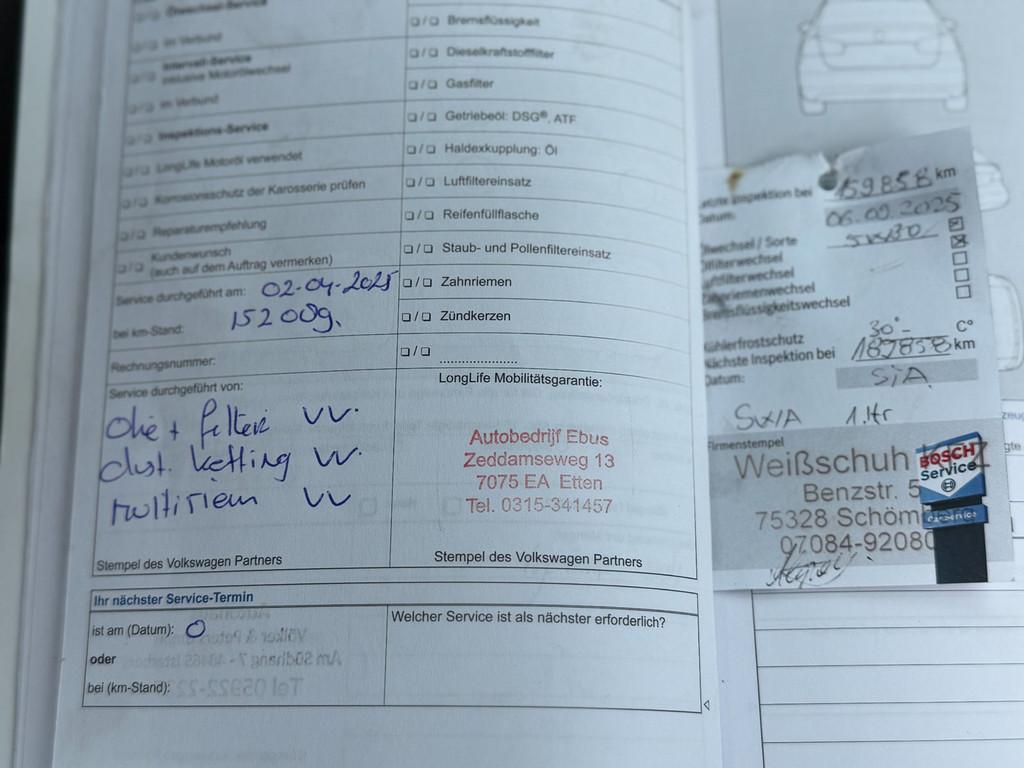 Ölwechsel-Service
❏/❏ im Verbund
Intervall-Service
❏/❏ inklusive Motorölwechsel
❏/❏ im Verbund
❏/❏ Inspektions-Service
❏/❏ LongLife Motoröl verwendet
❏/❏ Korrosionsschutz der Karosserie prüfen
❏/❏ Reparaturempfehlung
❏/❏ Kundenwunsch
(auch auf dem Auftrag vermerken)
Service durchgeführt am: 02-04-2025
bei km-Stand: 152009.
Rechnungsnummer:
Service durchgeführt von:
olie + filter VV.
dist. ketting VV.
multiriem VV
Stempel des Volkswagen Partners
❏/❏ Bremsflüssigkeit
❏/❏ Dieselkraftstofffilter
❏/❏ Gasfilter
❏/❏ Getriebeöl: DSG®, ATF
❏/❏ Haldexkupplung: Öl
❏/❏ Luftfiltereinsatz
❏/❏ Reifenfüllflasche
❏/❏ Staub- und Pollenfiltereinsatz
❏/❏ Zahnriemen
❏/❏ Zündkerzen
❏/❏ .....................
LongLife Mobilitätsgarantie:
Autobedrijf Ebus
Zeddamseweg 13
7075 EA Etten
Tel. 0315-341457
Stempel des Volkswagen Partners
Ihr nächster Service-Termin
ist am (Datum): O
oder
bei (km-Stand):
Welcher Service ist als nächster erforderlich?
Inspektion bei 159858 km
Datum: 06.09.2025
wechsel / Sorte 5W30
filterwechsel
filterwechsel
riemenwechsel
flüssigkeitswechsel
hlerfrostschutz 30°- C°
chste Inspektion bei 189858 km
Datum: SiA
SW/A 1.ltr
Firmenstempel
Weißschuh
Benzstr. 5
75328 Schöm
07084-92080
BOSCH
Service